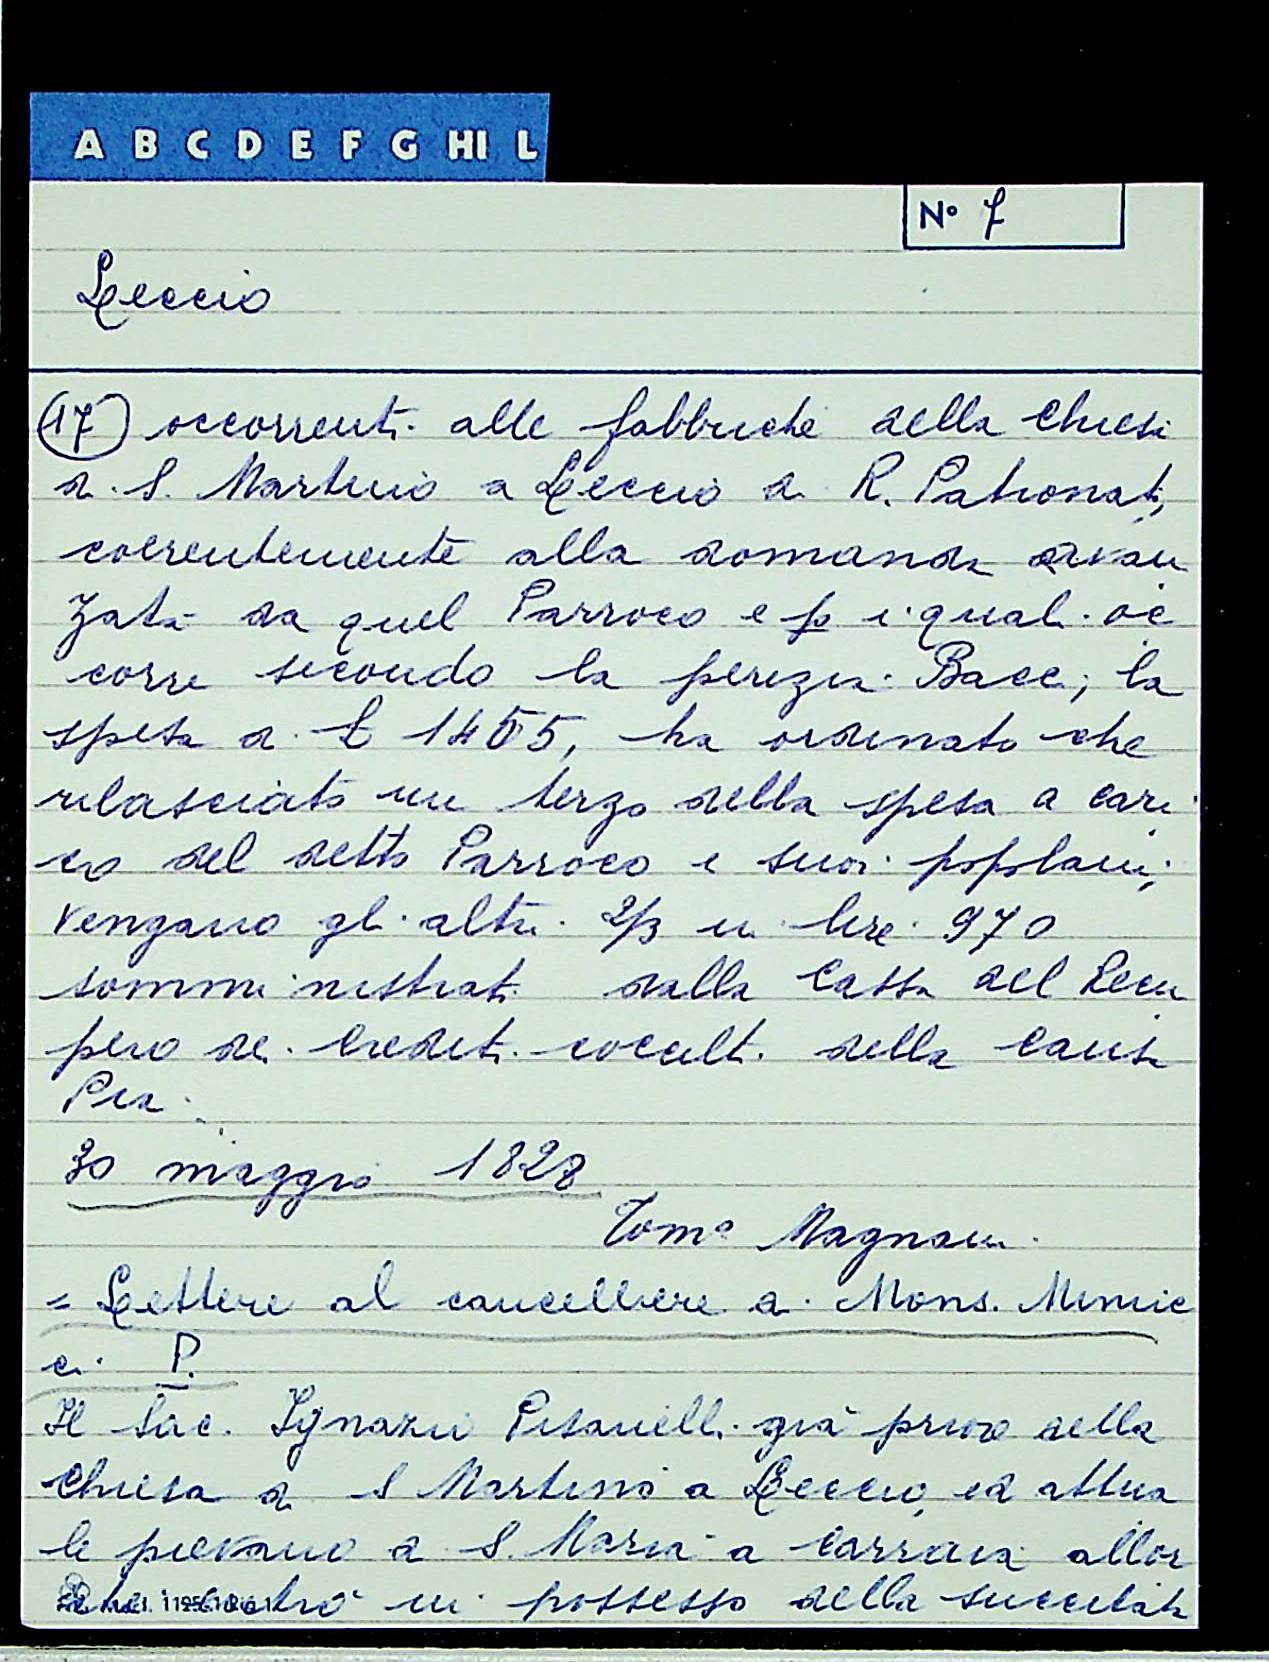 A B C D E F G HI L
N° 7
Leccio
(17) occorrenti alle fabbriche della Chiesa
di S. Martino a Leccio di R. Patronato,
coerentemente alla domanda avan
zata da quel Parroco e p i quali oc
corre secondo la perizia Bacci, la
spesa di £ 1455, ha ordinato che
rilasciato un terzo della spesa a cari
co del detto Parroco e suoi popolani,
vengano gli altri 2/3 in lire 970
somministrati dalla Cassa del Recu
pero dei Crediti occulti della Causa
Pia.
30 maggio 1828
Tom° Magnani
= Lettere al cancelliere di Mons. Minuc
ci P.
Il Sac. Ignazio Pisanelli già priore della
Chiesa di S Martino a Leccio, ed attua
le pievano a S. Maria a Carraia allor
che entrò in possesso della succitata